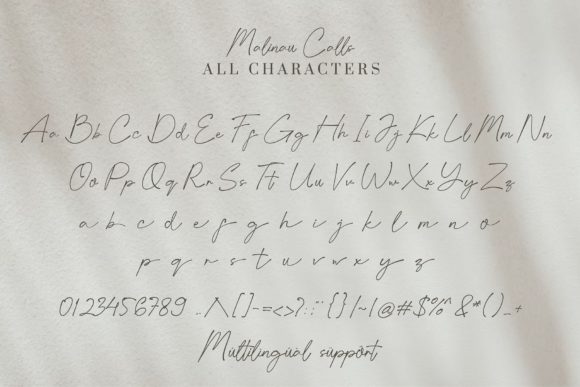 Malinau Calls
ALL CHARACTERS
Aa Bb Cc Dd Ee Ff Gg Hh Ii Jj Kk Ll Mm Nn
Oo Pp Qq Rr Ss Tt Uu Vv Ww Xx Yy Zz
a b c d e f g h i j k l m n o
p q r s t u v w x y z
0123456789 ..,/\[]-=<>?:;¨{}|~!@#$%^&*()_+
Mültilingüäl süppört